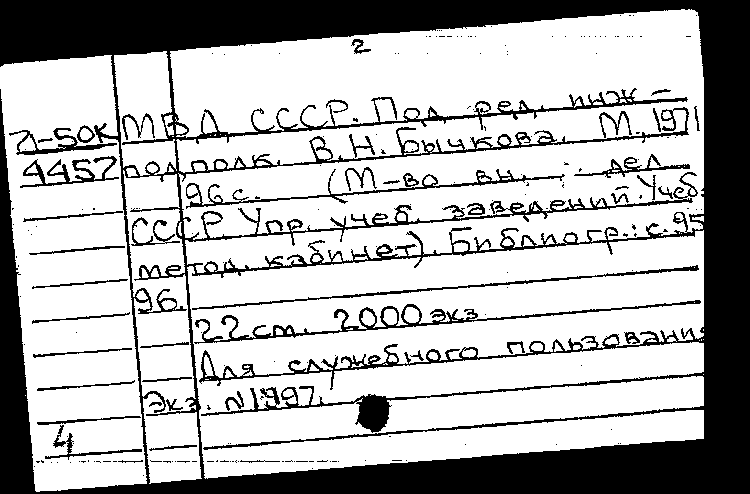 2
Д-50К МВД СССР. Под ред. инж-
4457 подполк. В.Н. Бычкова. М., 1971
96 с. (М-во вн. дел
СССР Упр. учеб. заведений. Учеб.
метод. кабинет). Библиогр.: с. 95
96.
22 см. 2000 экз
Для служебного пользования
Экз. №1997.
4